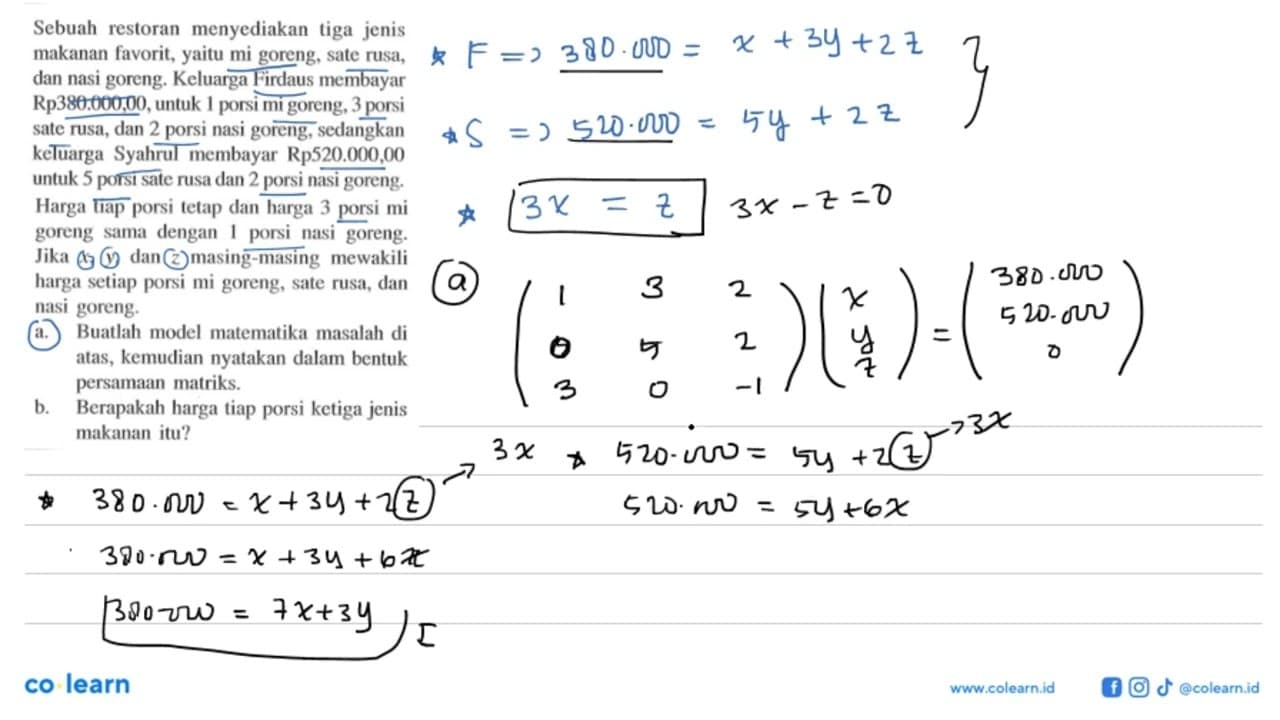 Sebuah restoran menyediakan tiga jenis
makanan favorit, yaitu mi goreng, sate rusa,
dan nasi goreng. Keluarga Firdaus membayar
Rp380.000,00, untuk 1 porsi mi goreng, 3 porsi
sate rusa, dan 2 porsi nasi goreng, sedangkan
keluarga Syahrul membayar Rp520.000,00
untuk 5 porsi sate rusa dan 2 porsi nasi goreng.
Harga tiap porsi tetap dan harga 3 porsi mi
goreng sama dengan 1 porsi nasi goreng.
Jika x, y dan z masing-masing mewakili
harga setiap porsi mi goreng, sate rusa, dan
nasi goreng.
a. Buatlah model matematika masalah di
atas, kemudian nyatakan dalam bentuk
persamaan matriks.
b. Berapakah harga tiap porsi ketiga jenis
makanan itu?
* F => 380.000 = x + 3y + 2z }
* S => 520.000 = 5y + 2z
* 3x = z 3x - z = 0
a
( 1 3 2 ) ( x ) = ( 380.000 )
( 0 5 2 ) ( y ) = ( 520.000 )
( 3 0 -1 ) ( z ) = ( 0 )
* 380.000 = x + 3y + 2z → 3x
380.000 = x + 3y + 6x
380.000 = 7x + 3y ) I
* 520.000 = 5y + 2z → 3x
520.000 = 5y + 6x
co learn
www.colearn.id
@colearn.id